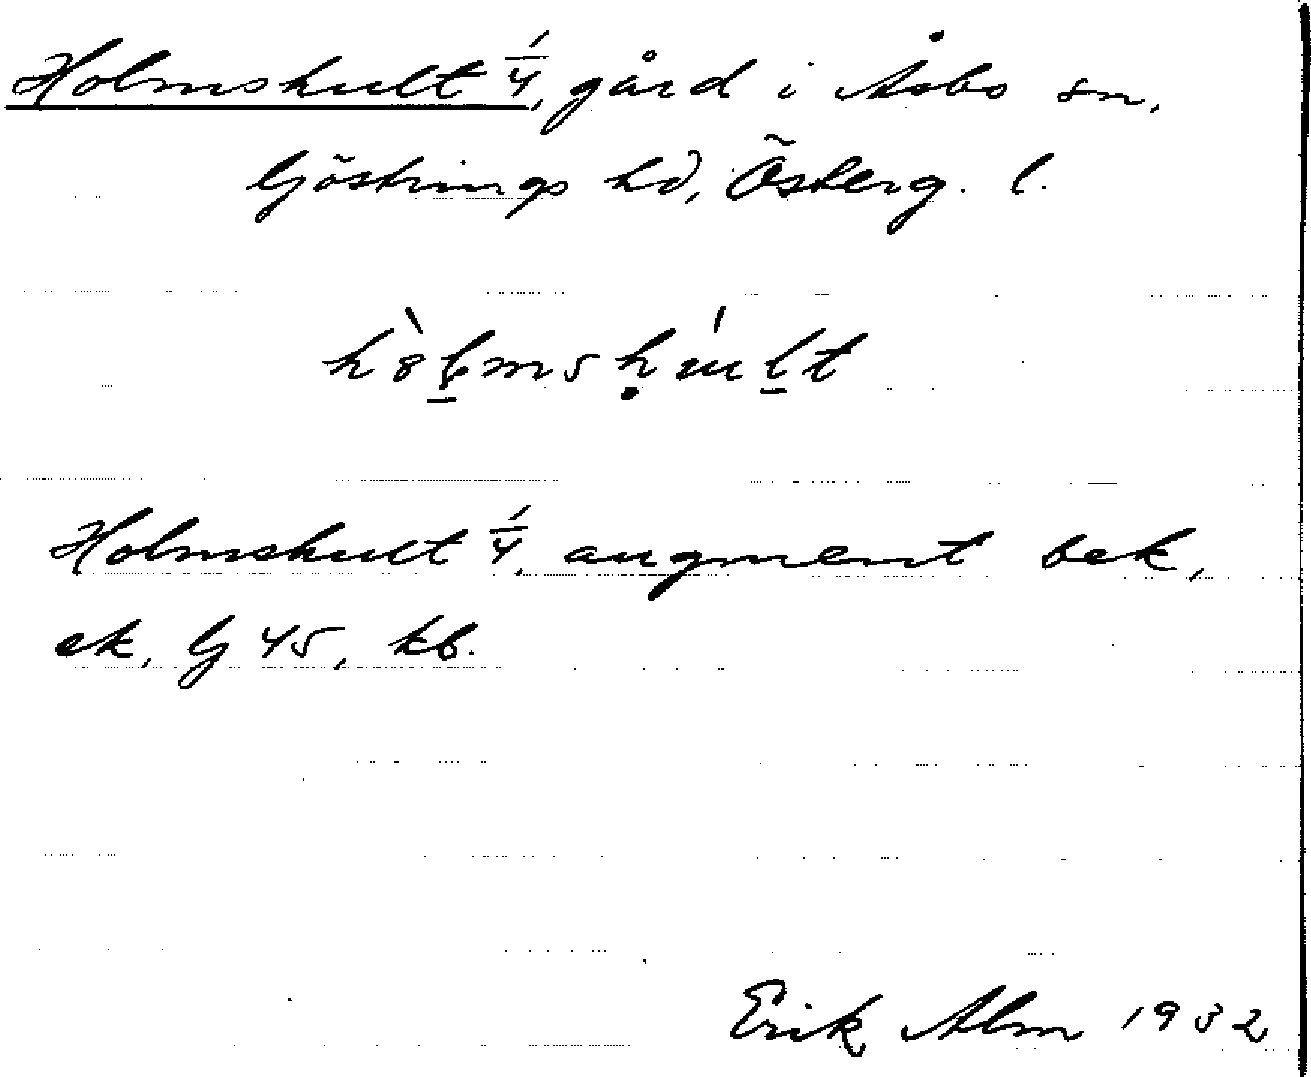 Holmshult 1/4, gård i Åsbo sn,
Göstrings hd, Österg. l.
hò̱lmshúḻt
Holmshult 1/4, augment bek,
ek, G 45, kb.
Erik Alm 1932